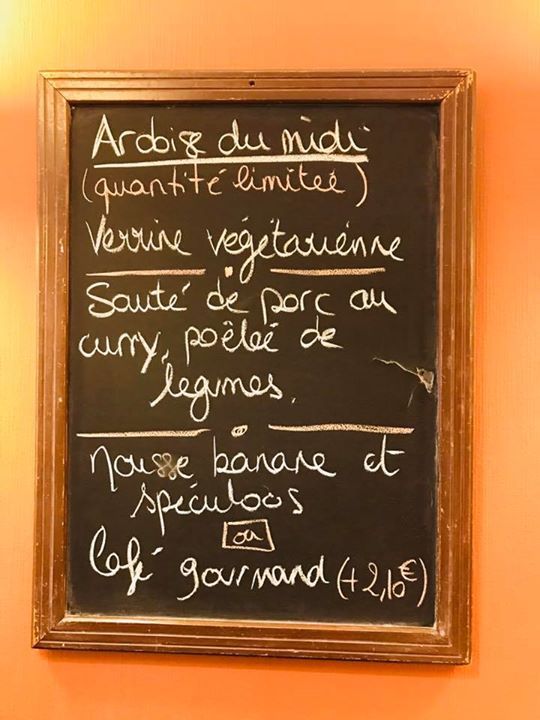 Ardoise du midi
(quantité limitée)
Verrine végétarienne
Sauté de porc au
curry, poêlée de
légumes.
Mousse banane et
spéculoos
ou
Café gourmand (+2,10€)